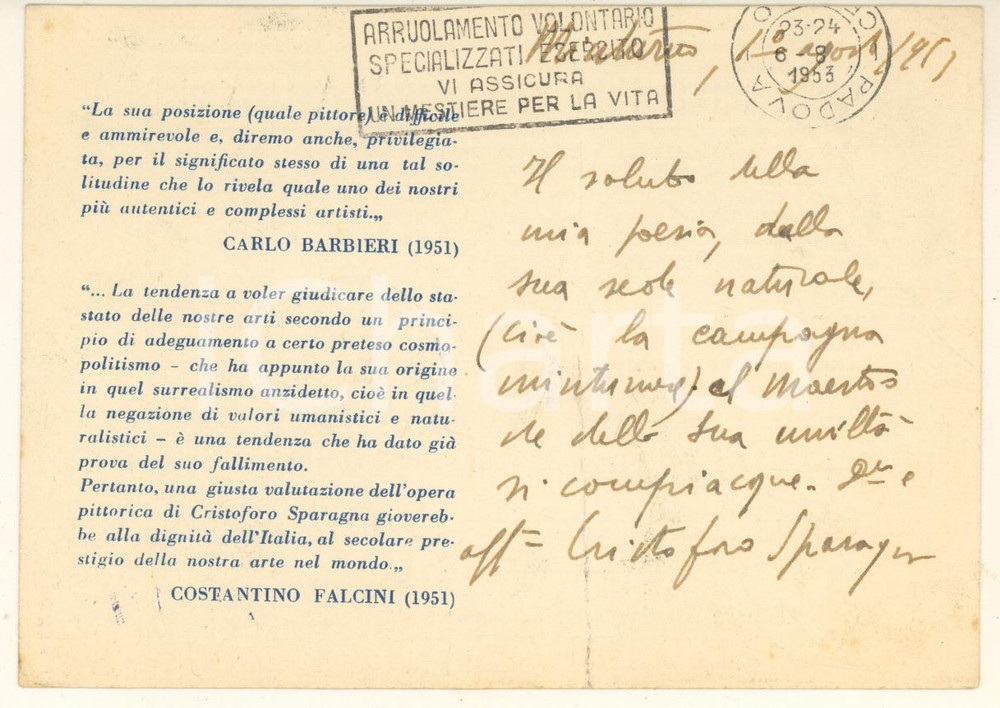 ARRUOLAMENTO VOLONTARIO
SPECIALIZZATI ESERCITO
VI ASSICURA
UN MESTIERE PER LA VITA
23-24
6-8
1953
PADOVA
Minturno, 1° agosto 1953
“La sua posizione (quale pittore) è difficile
e ammirevole e, diremo anche, privilegia-
ta, per il significato stesso di una tal so-
litudine che lo rivela quale uno dei nostri
più autentici e complessi artisti.„
CARLO BARBIERI (1951)
“... La tendenza a voler giudicare dello sta-
stato delle nostre arti secondo un princi-
pio di adeguamento a certo preteso cosmo-
politismo - che ha appunto la sua origine
in quel surrealismo anzidetto, cioè in quel-
la negazione di valori umanistici e natu-
ralistici - è una tendenza che ha dato già
prova del suo fallimento.
Pertanto, una giusta valutazione dell'opera
pittorica di Cristoforo Sparagna giovereb-
be alla dignità dell'Italia, al secolare pre-
stigio della nostra arte nel mondo.„
COSTANTINO FALCINI (1951)
Il saluto della
mia poesia, dalla
sua sede naturale,
(cioè la campagna
minturnese) al Maestro
che della sua umiltà
si compiacque.
aff Cristoforo Sparagna